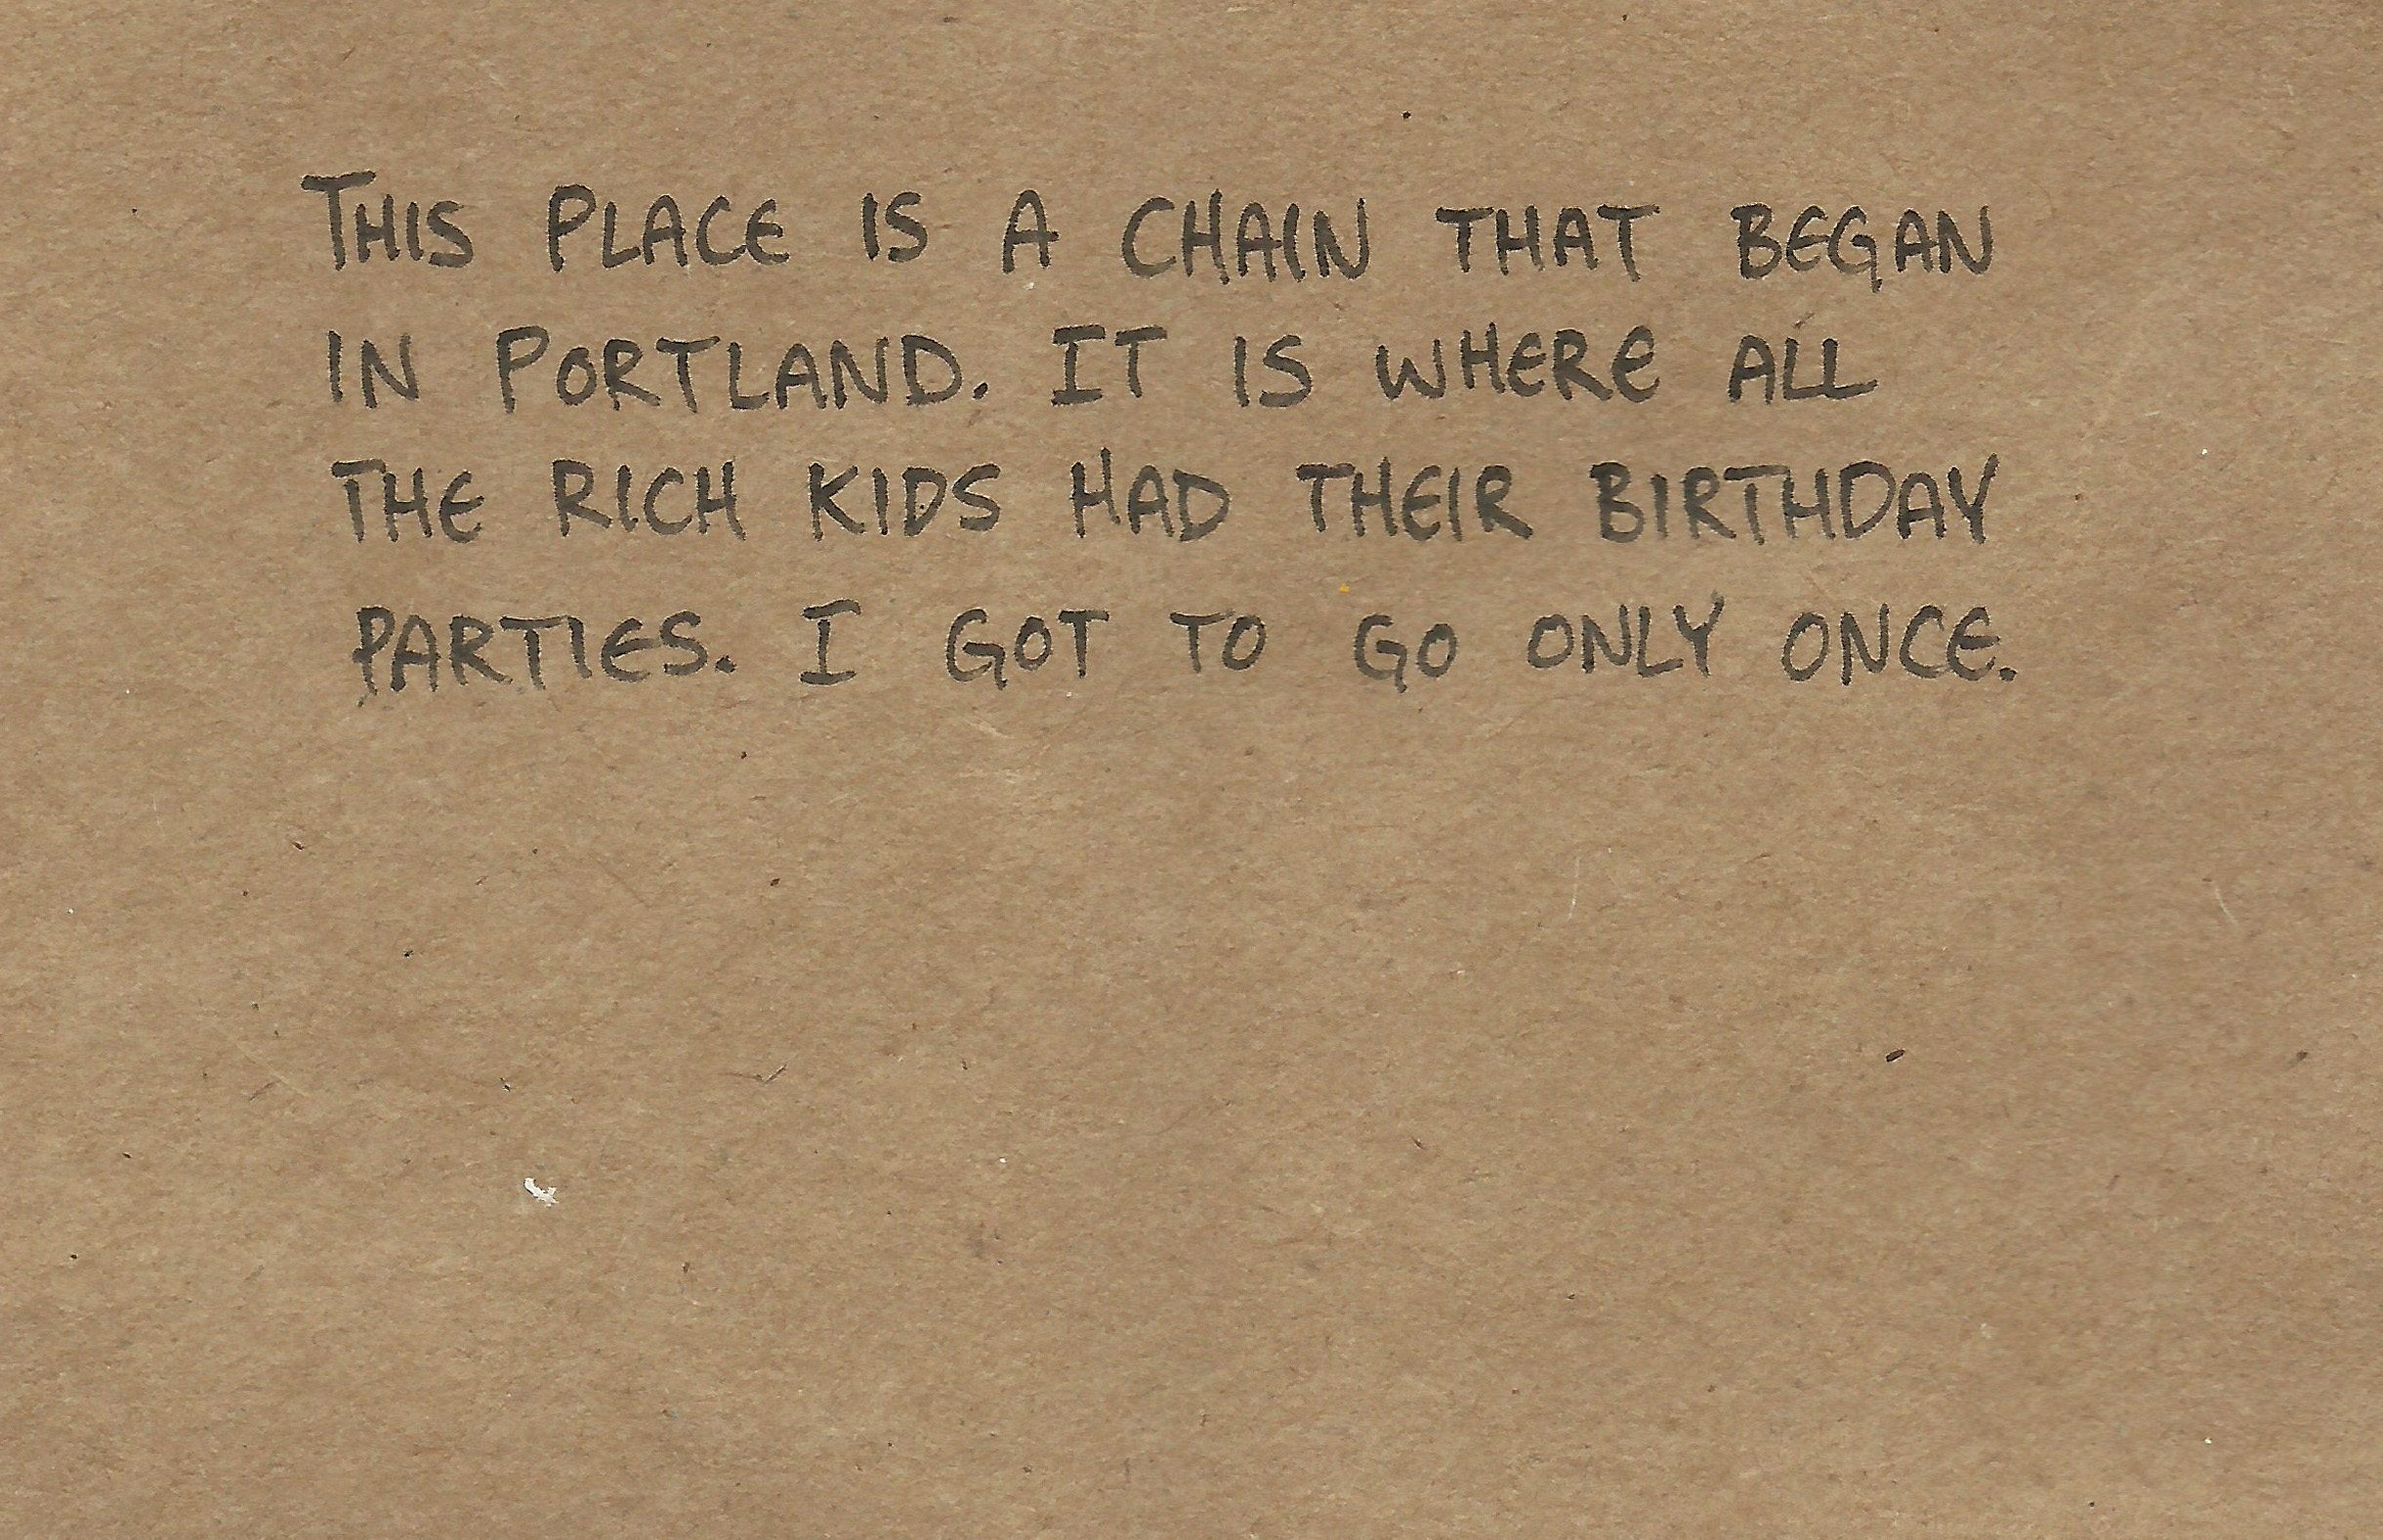 THIS PLACE IS A CHAIN THAT BEGAN
IN PORTLAND. IT IS WHERE ALL
THE RICH KIDS HAD THEIR BIRTHDAY
PARTIES. I GOT TO GO ONLY ONCE.